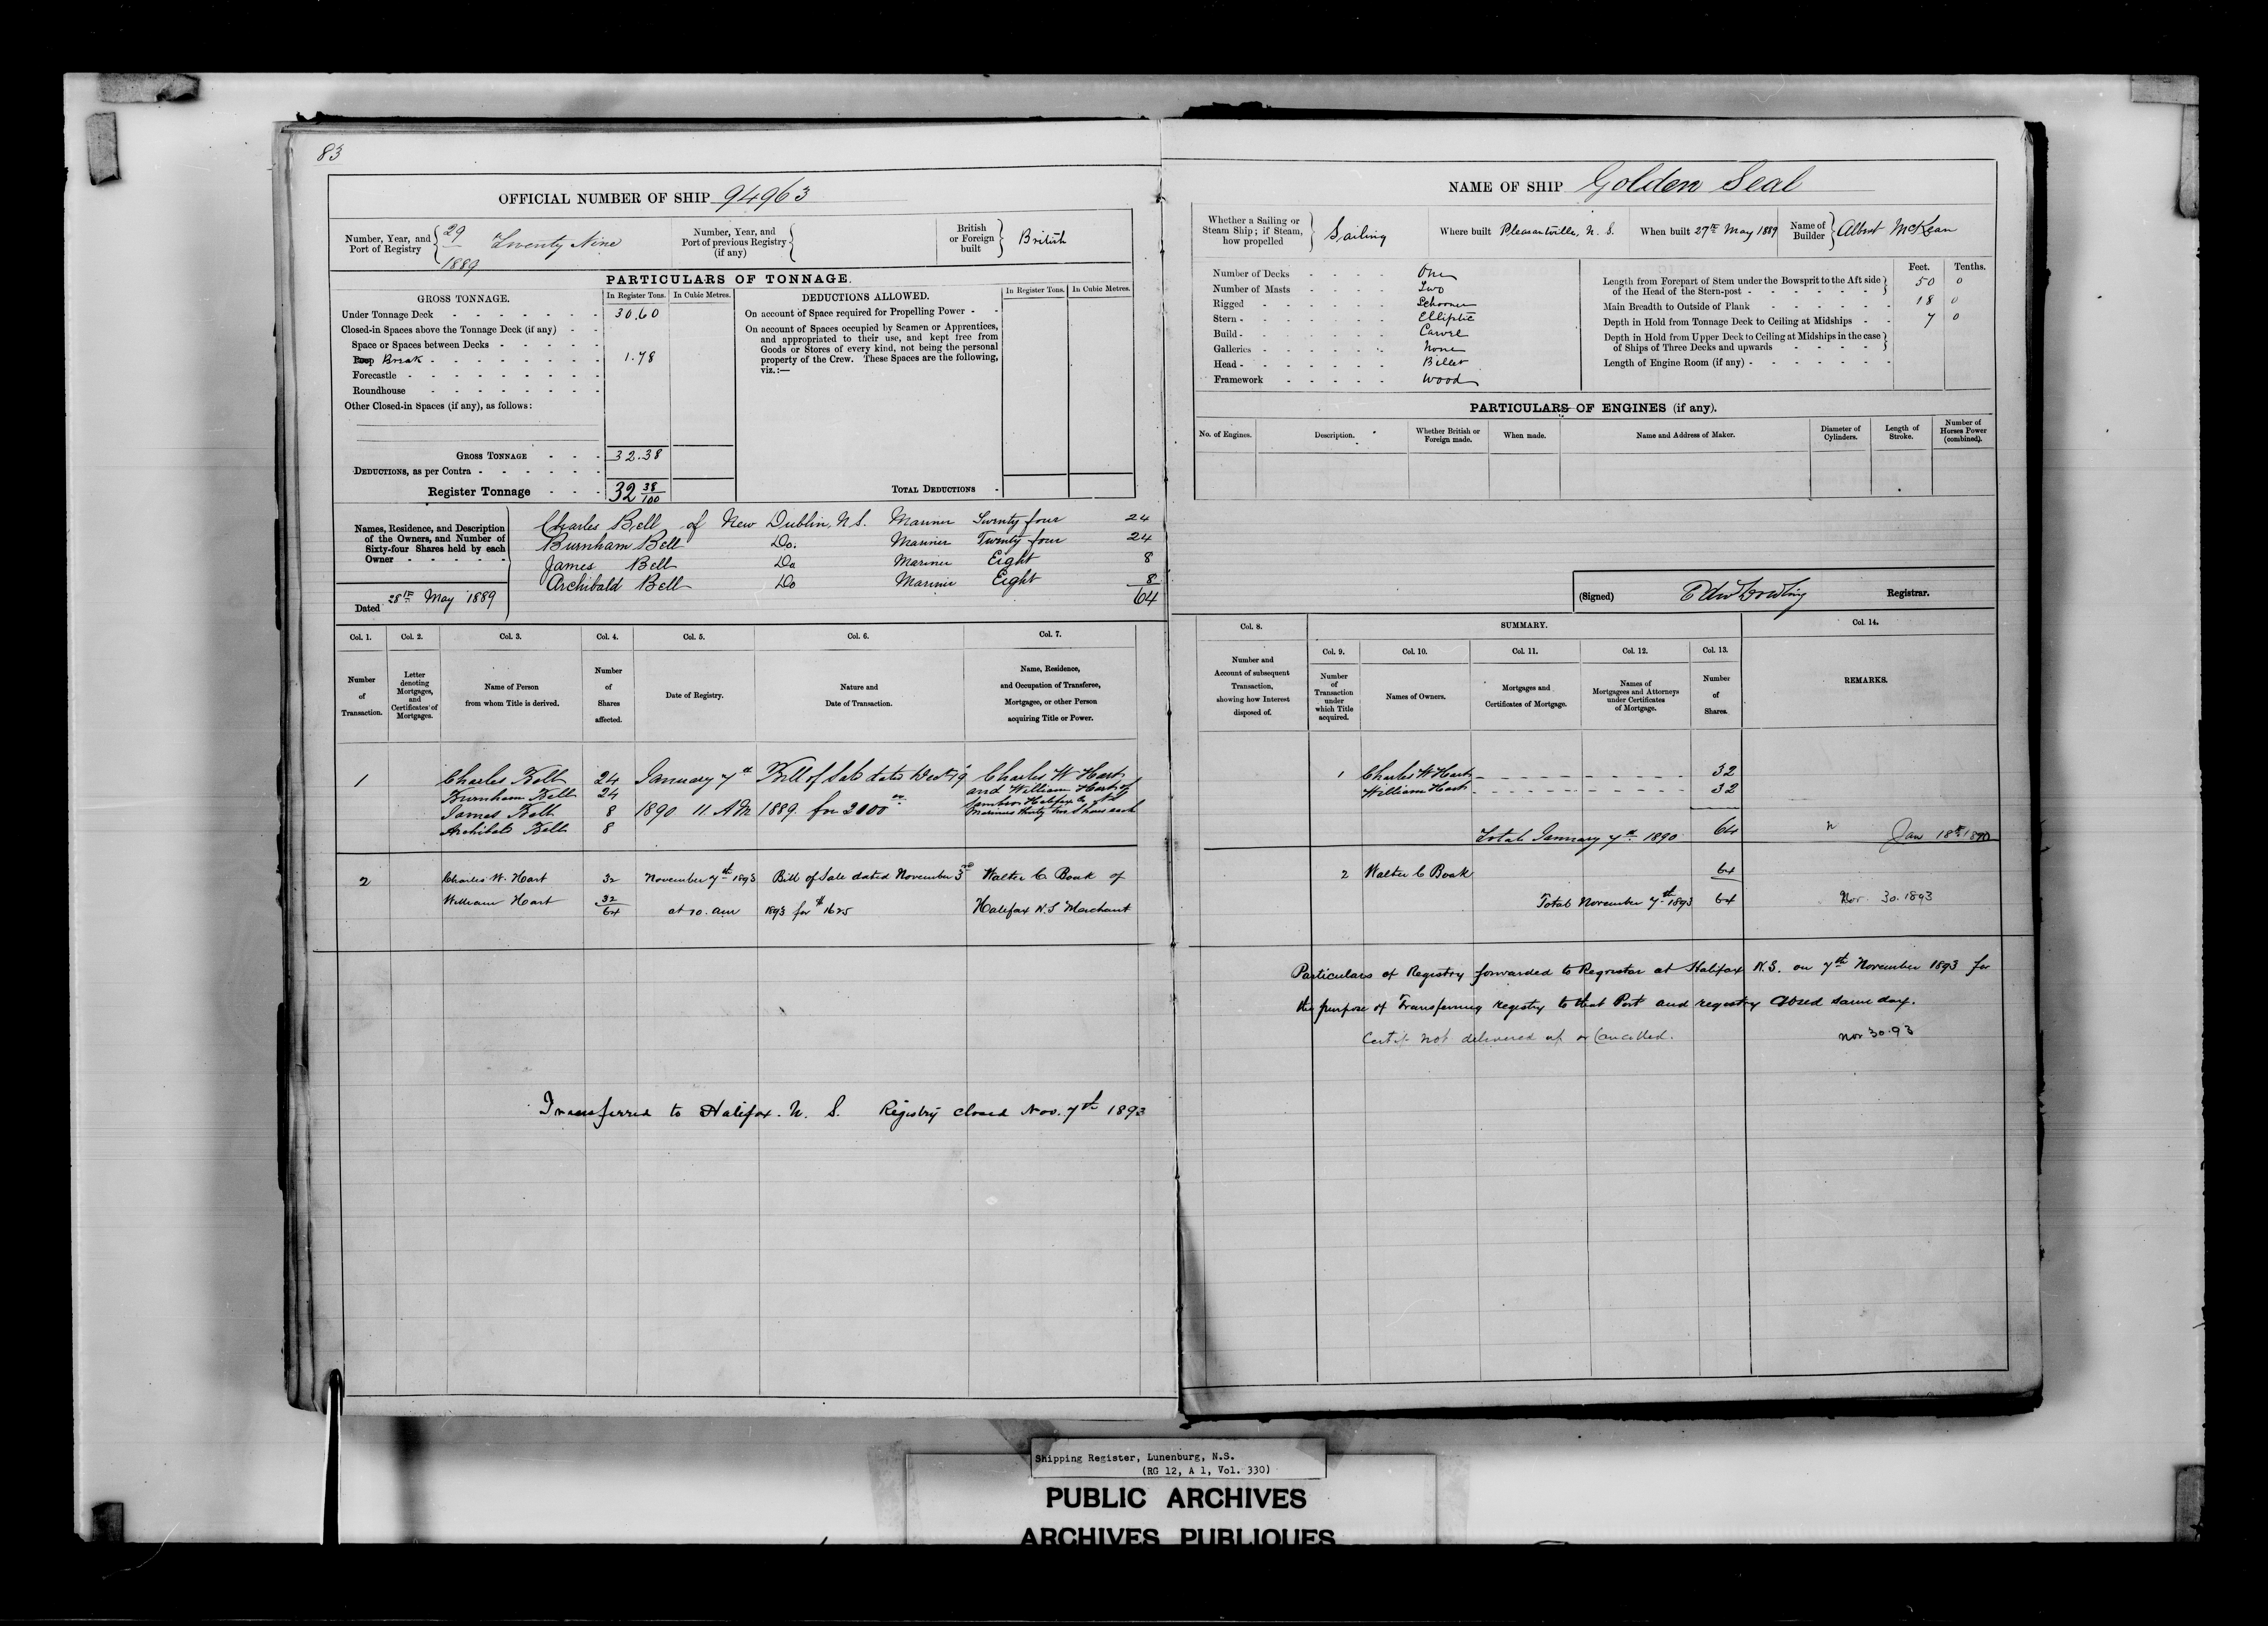 83
OFFICIAL NUMBER OF SHIP 94963
Number, Year, and Port of Registry { 29 Twenty Nine
1889
Number, Year, and Port of previous Registry (if any) {
British or Foreign built } British
PARTICULARS OF TONNAGE.
GROSS TONNAGE. In Register Tons. In Cubic Metres.
Under Tonnage Deck - 30.60
Closed-in Spaces above the Tonnage Deck (if any)
Space or Spaces between Decks
Poop Break 1.78
Forecastle
Roundhouse
Other Closed-in Spaces (if any), as follows:
GROSS TONNAGE 32.38
DEDUCTIONS, as per Contra
Register Tonnage 32 38/100
DEDUCTIONS ALLOWED. In Register Tons. In Cubic Metres.
On account of Space required for Propelling Power
On account of Spaces occupied by Seamen or Apprentices,
and appropriated to their use, and kept free from
Goods or Stores of every kind, not being the personal
property of the Crew. These Spaces are the following,
viz.:—
TOTAL DEDUCTIONS
Names, Residence, and Description
of the Owners, and Number of
Sixty-four Shares held by each
Owner
Charles Bell of New Dublin, N.S. Mariner Twenty four 24
Burnham Bell Do. Mariner Twenty four 24
James Bell Do Mariner Eight 8
Archibald Bell Do Mariner Eight 8
64
Dated 28th May 1889
Col. 1. Col. 2. Col. 3. Col. 4. Col. 5. Col. 6. Col. 7.
Number of Transaction.
Letter denoting Mortgages, and Certificates of Mortgages.
Name of Person from whom Title is derived.
Number of Shares affected.
Date of Registry.
Nature and Date of Transaction.
Name, Residence, and Occupation of Transferee, Mortgagee, or other Person acquiring Title or Power.
1 Charles Bell 24 January 7th Bill of Sale dated Dec 19 Charles W Hart
Burnham Bell 24 and William Hart of
James Bell 8 1890 11. A.M 1889. for 2000 Sambro Halifax Co
Archibald Bell 8 Mariners thirty two Shares each
2 Charles W. Hart 32 November 7th 1893 Bill of Sale dated November 3rd Walter C Boak of
William Hart 32 at 10. am 1893 for $1625 Halifax N.S Merchant
64
Transferred to Halifax. N. S. Registry closed Nov. 7th 1893
NAME OF SHIP Golden Seal
Whether a Sailing or Steam Ship; if Steam, how propelled } Sailing
Where built Pleasantville, N. S.
When built 27th May 1889
Name of Builder } Albert McKean
Number of Decks One
Number of Masts Two
Rigged Schooner
Stern Elliptic
Build Carvel
Galleries None
Head Billet
Framework Wood
Feet. Tenths.
Length from Forepart of Stem under the Bowsprit to the Aft side
of the Head of the Stern-post 50 0
Main Breadth to Outside of Plank 18 0
Depth in Hold from Tonnage Deck to Ceiling at Midships 7 0
Depth in Hold from Upper Deck to Ceiling at Midships in the case
of Ships of Three Decks and upwards
Length of Engine Room (if any)
PARTICULARS OF ENGINES (if any).
No. of Engines. Description. Whether British or Foreign made. When made. Name and Address of Maker. Diameter of Cylinders. Length of Stroke. Number of Horses Power (combined).
(Signed) Edw Dowling Registrar.
Col. 8. SUMMARY. Col. 14.
Col. 9. Col. 10. Col. 11. Col. 12. Col. 13.
Number and Account of subsequent Transaction, showing how Interest disposed of.
Number of Transaction under which Title acquired.
Names of Owners.
Mortgages and Certificates of Mortgage.
Names of Mortgagees and Attorneys under Certificates of Mortgage.
Number of Shares.
REMARKS.
1 Charles W Hart 32
William Hart 32
Total January 7th 1890 64 Jan 18th 1890
2 Walter C Boak 64
Total November 7th 1893 64 Nov. 30. 1893
Particulars of Registry forwarded to Registrar at Halifax N.S. on 7th November 1893 for
the purpose of Transferring registry to that Port and registry closed same day.
Certif. not delivered up or Cancelled. Nov 30.93
Shipping Register, Lunenburg, N.S.
(RG 12, A 1, Vol. 330)
PUBLIC ARCHIVES
ARCHIVES PUBLIQUES